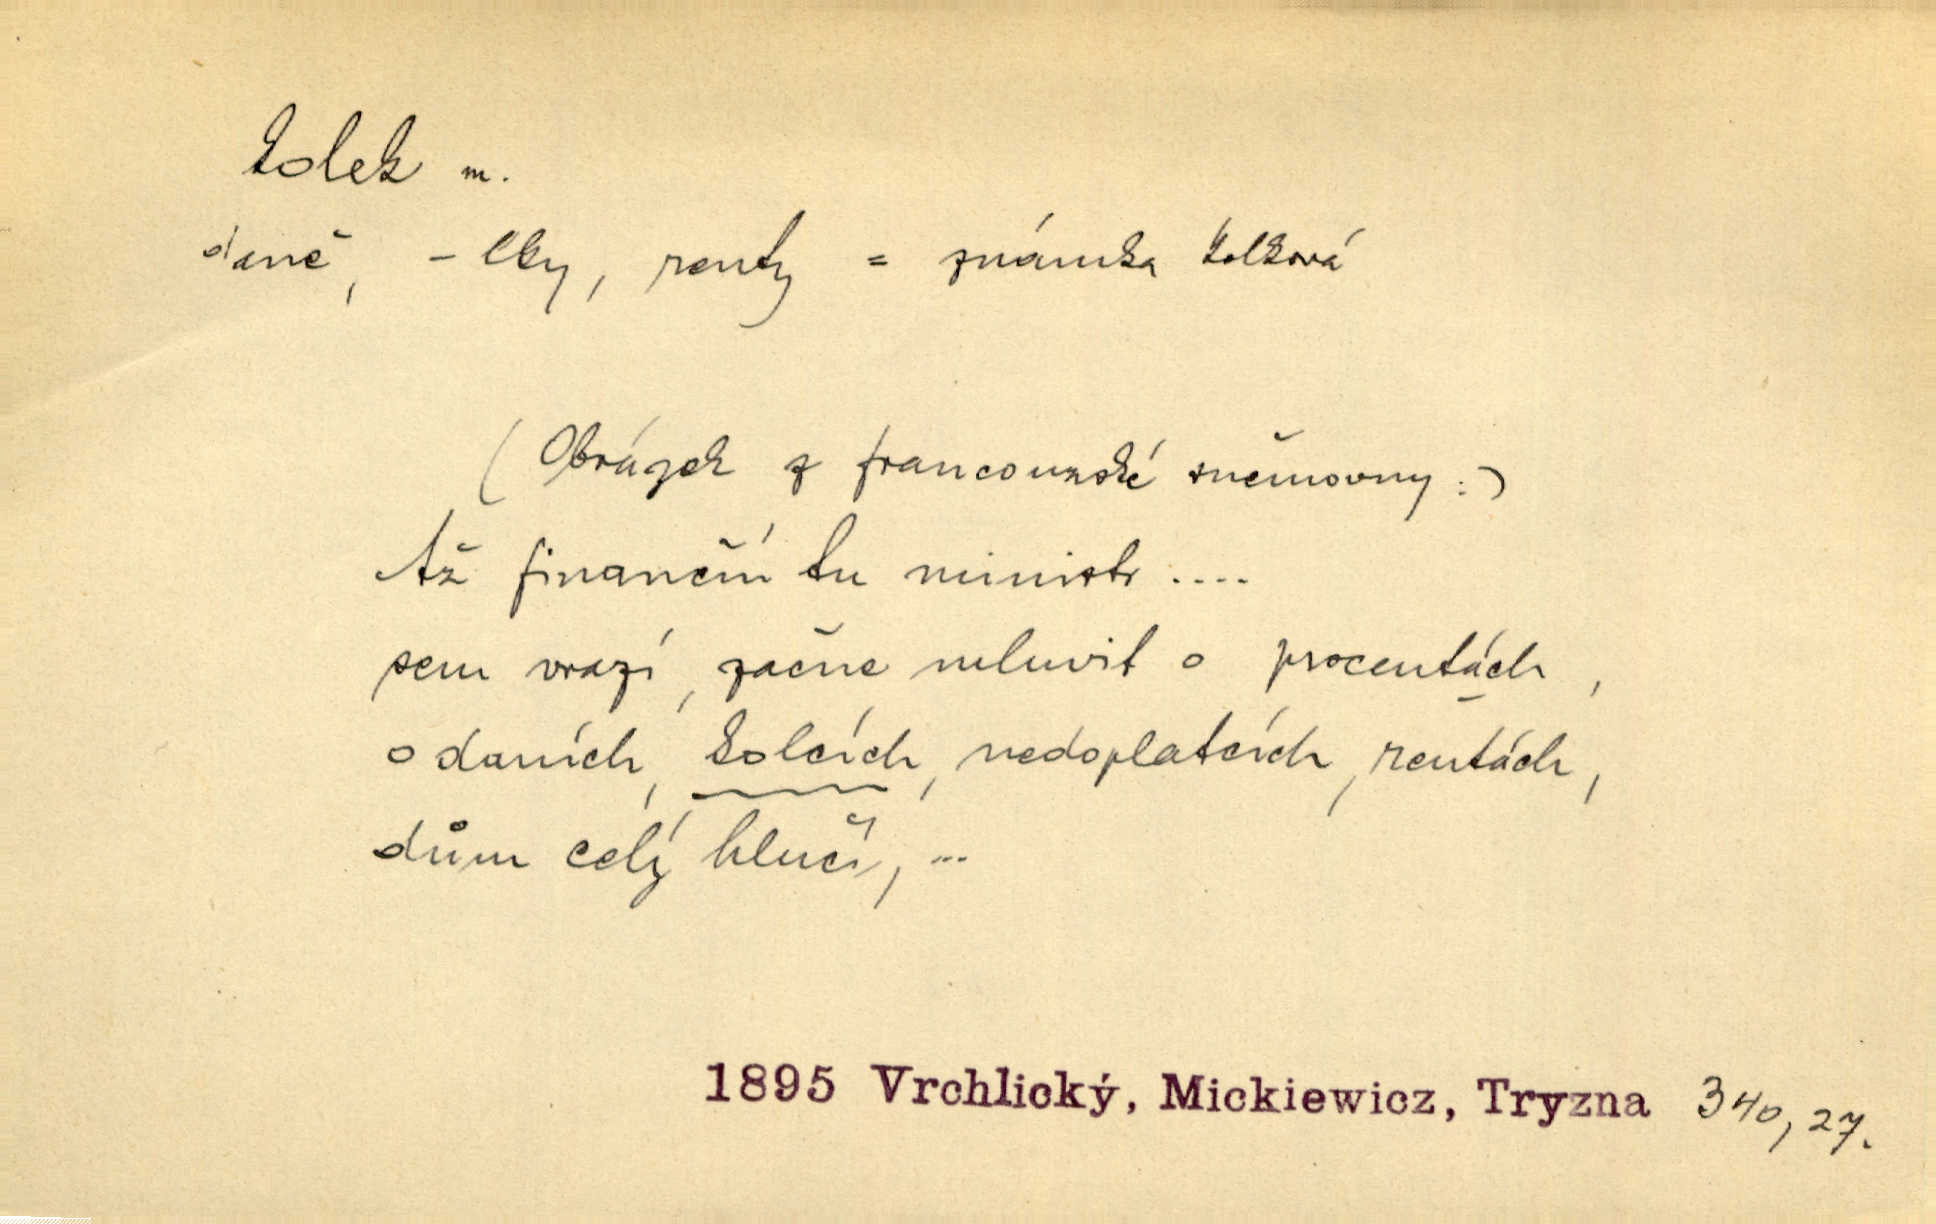 kolek m.
daně, - lky, renty = známka kolková
(Obrázek z francouzské sněmovny:)
Až finanční tu ministr ....
sem vrazí, začne mluvit o procentách,
o daních, kolcích, nedoplatcích, rentách,
dům celý hlučí, ...
1895 Vrchlický, Mickiewicz, Tryzna 340, 27.